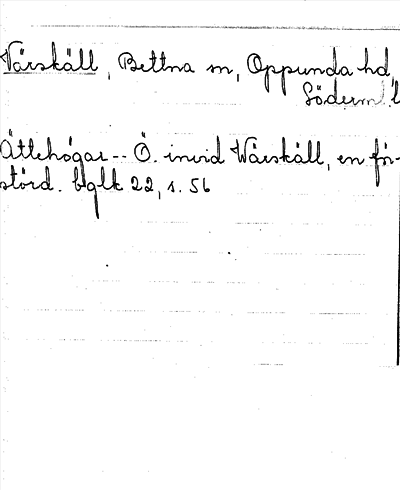 Vårskäll, Bettna sn, Oppunda hd,
Söderm. l
Ättehögar -- Ö. invid Wårskäll, en för-
störd. bglk 22, s. 56